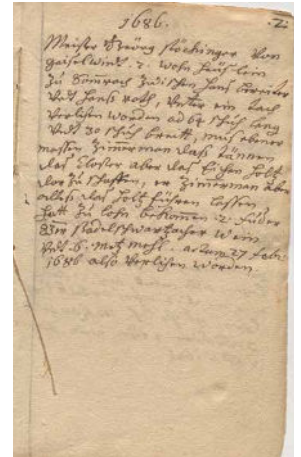 1686.
.2.
Meister Geörg Röchinger Von
Gaiselwindt. 2. Wohn heüslein
Zu Somrach Zwischen Hans
Vndt Hans Roth, Vnter ein tach
Verlihen worden ad 64 schuch lang
Vndt 30 schuch breitt, mus
massen Zimmerman das tännen
das Closter aber das Eichen holtz
dar zu schaffen, er Zimerman aber
alles das holtz führen lassen
hatt Zu lohn bekommen .2. fuder
Stadelschwartzacher Wein
Vndt .6. Mtz mehl. actum 27 febr:
1686 also Verlihen worden